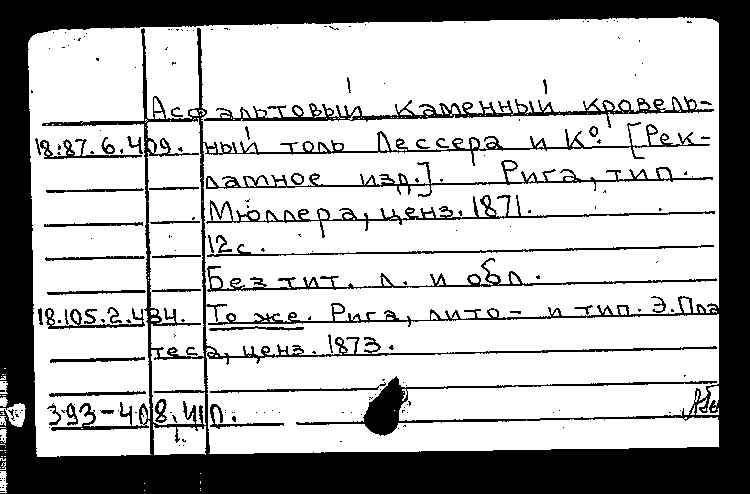 Асфальтовый каменный кровель=
18.87.6.409. ный толь Лессера и К°. [Рек-
ламное изд.]. Рига, тип.
Мюллера, ценз. 1871.
12 с.
Без тит. л. и обл.
18.105.2.434. То же. Рига, лито- и тип. Э. Пла
теса, ценз. 1873.
393-408.